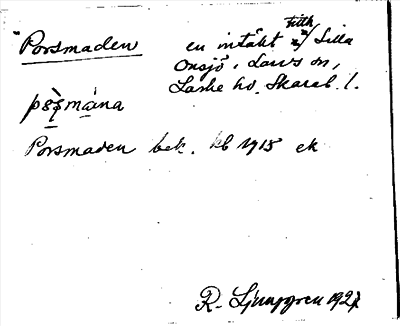 Porsmaden en intäkt tillh
Lilla
Onsjö, Larvs sn,
Laske hd. Skarab. l.
Porsmaden bek. kb 1915 ek
R. Ljunggren 1927